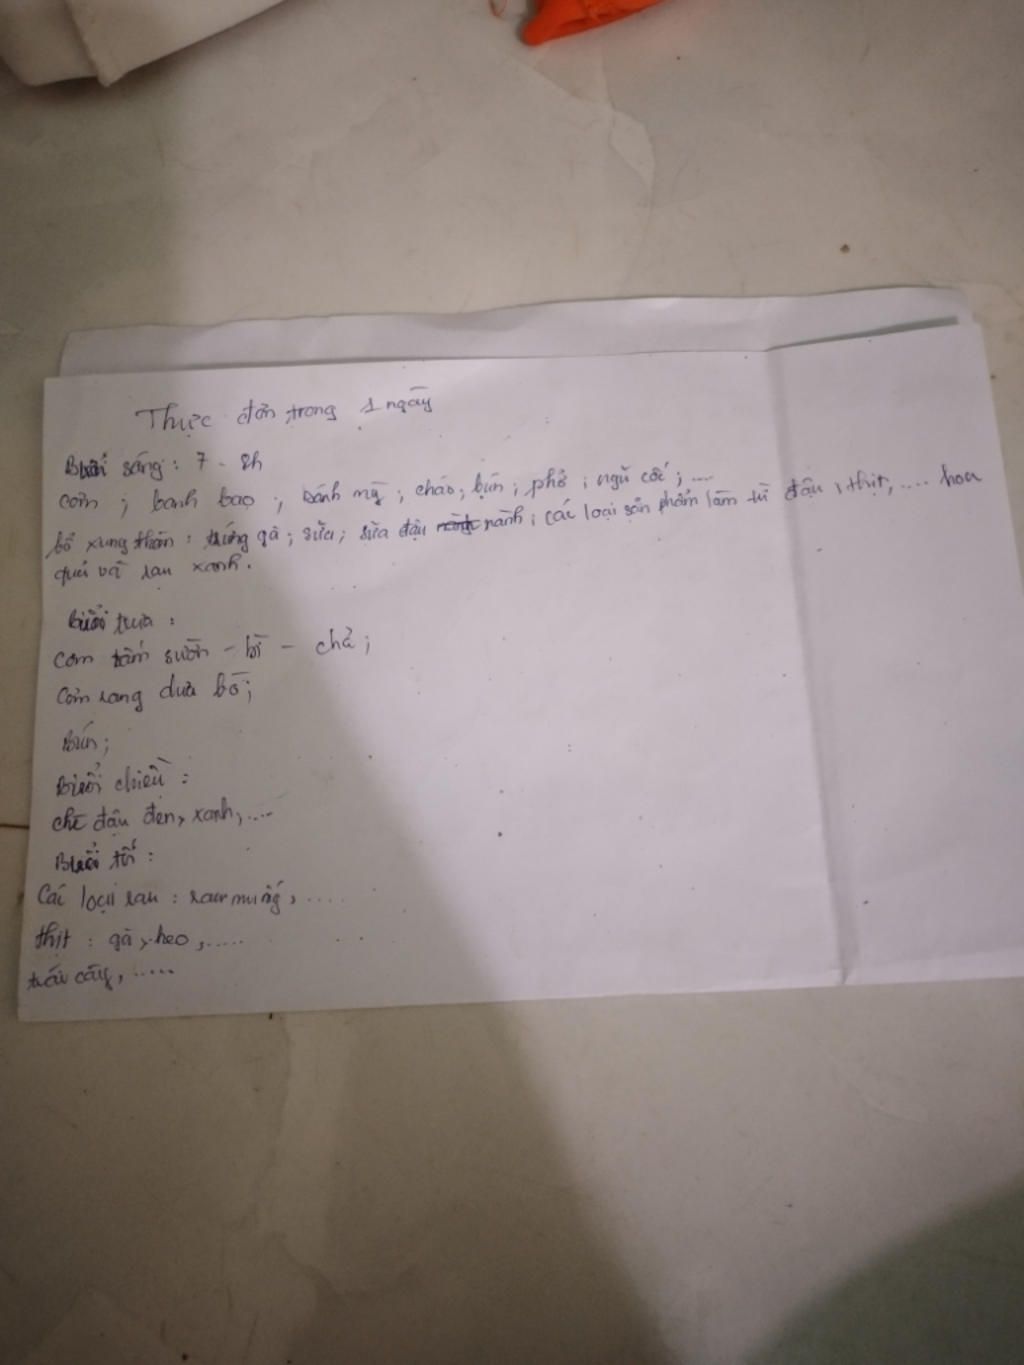 Thực đơn trong 1 ngày
Buổi sáng : 7 - 8h
cơm ; banh bao ; bánh mỳ ; cháo ; bún ; phở ; ngũ cốc ; ....
bổ xung thêm : trứng gà ; sữa ; sữa đậu nành ; các loại sản phẩm làm từ đậu , thịt, .... hoa
quả và rau xanh .
Buổi trưa :
Cơm tấm sườn - bì - chả ;
Cơm rang dưa bò ;
Bún ;
Buổi chiều :
chè đậu đen, xanh, ....
Buổi tối :
Các loại rau : rau muống, ....
thịt : gà, heo, .....
trái cây, .....